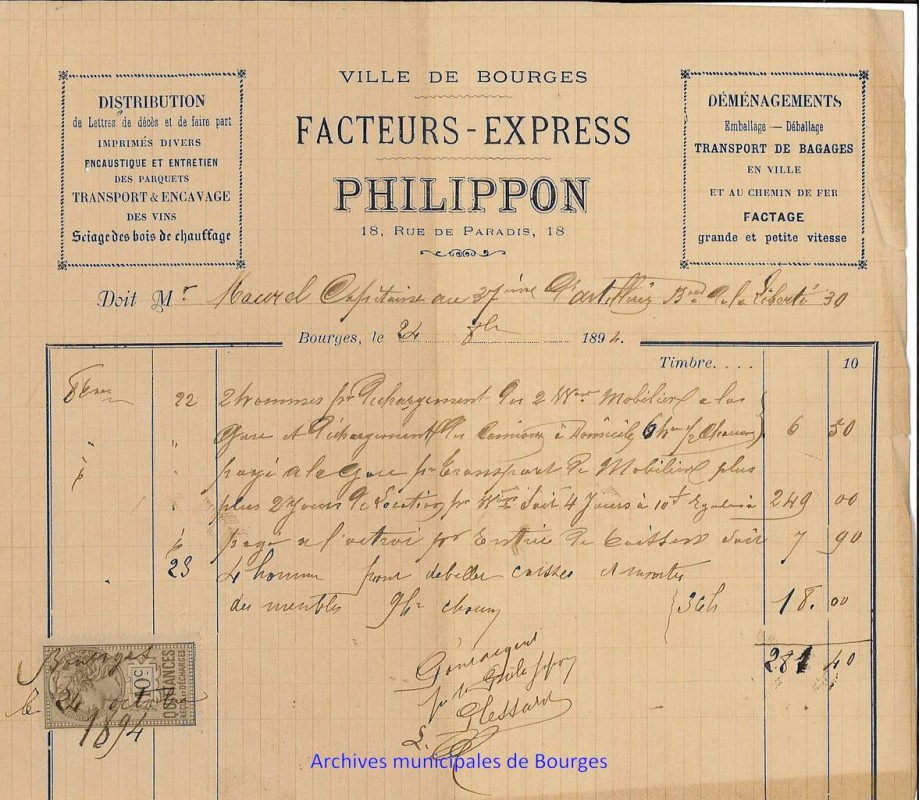 VILLE DE BOURGES
FACTEURS-EXPRESS
PHILIPPON
18, RUE DE PARADIS, 18
DISTRIBUTION
de Lettres de décès et de faire part
IMPRIMÉS DIVERS
ENCAUSTIQUE ET ENTRETIEN
DES PARQUETS
TRANSPORT & ENCAVAGE
DES VINS
Sciage des bois de chauffage
DÉMÉNAGEMENTS
Emballage — Déballage
TRANSPORT DE BAGAGES
EN VILLE
ET AU CHEMIN DE FER
FACTAGE
grande et petite vitesse
Doit Mr Maurel Capitaine au 37ième d'artillerie Bard de la Liberté 30
Bourges, le 24 1894.
Timbre.... 10
22 2 hommes pr déchargement des 2 Mobilier a la
Gare et déchargement des camions à Domicile 6 6 50
payé à la Gare pr transport de Mobilier plus
plus 2 jours de Location pr soit 4 Jours à 10f 249 00
payé a l'octroi pr Entrée de soit 7 90
23 4 hommes pour deballer caisses et monter
des meubles 9h chacun 36h 18. 00
281 40
Bourges
le 24 octobre
1894
10c
QUITTANCES
REÇUS ET DÉCHARGES
Archives municipales de Bourges